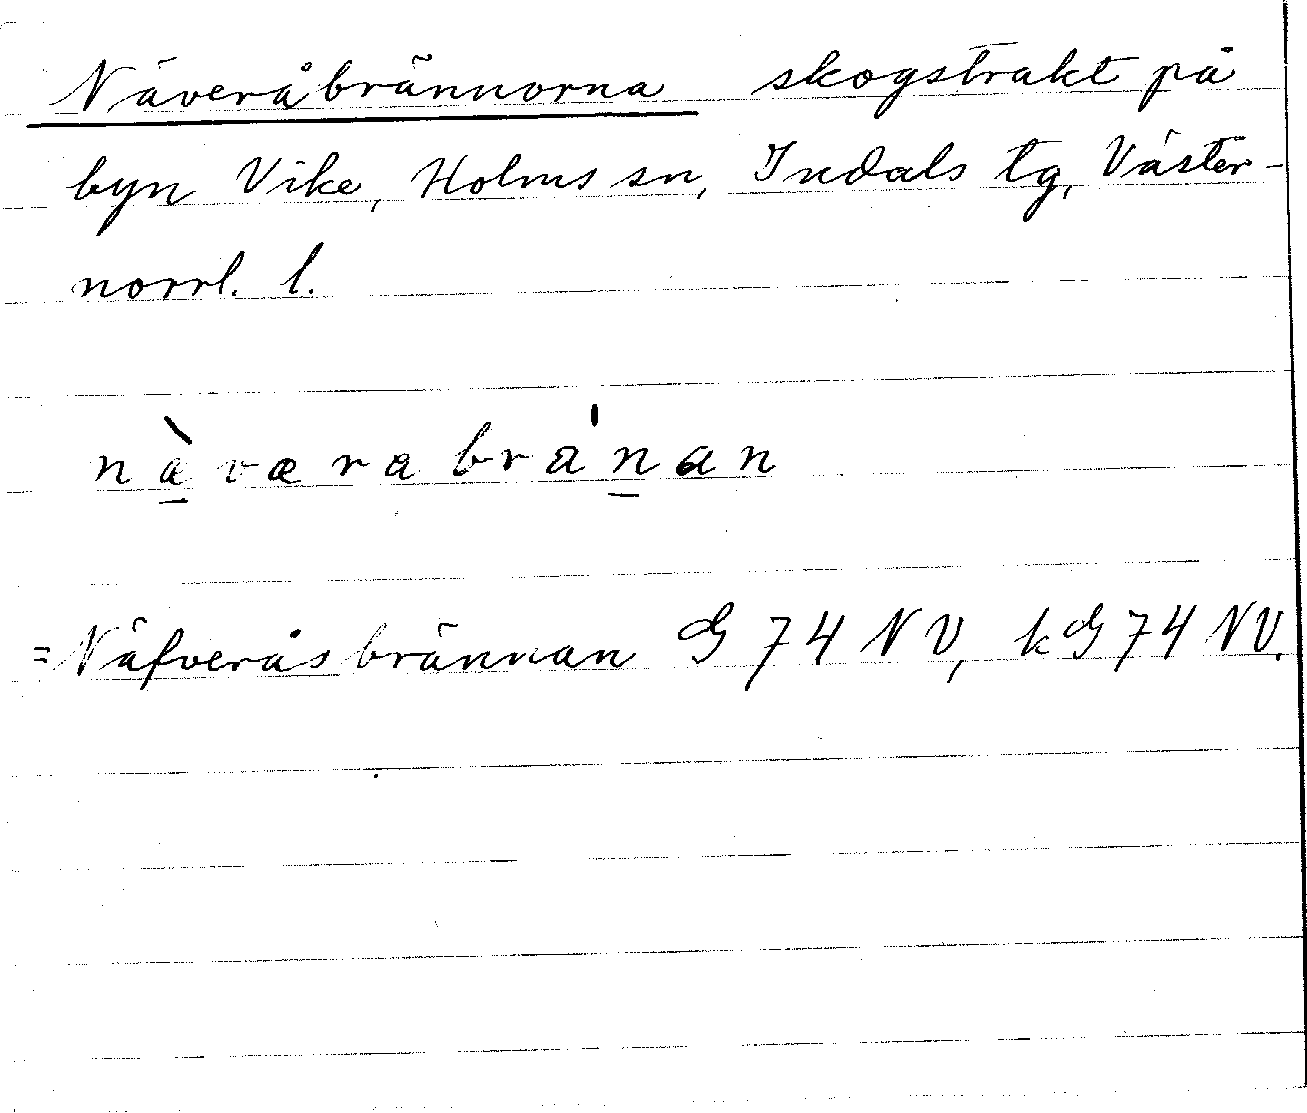 Näveråbrännorna skogstrakt på
byn Vike, Holms sn, Indals tg, Väster-
norrl. l.
næ̠̀værabra̍n̠an
=Näfveråsbrännan G 74 NV, kG 74 NV.